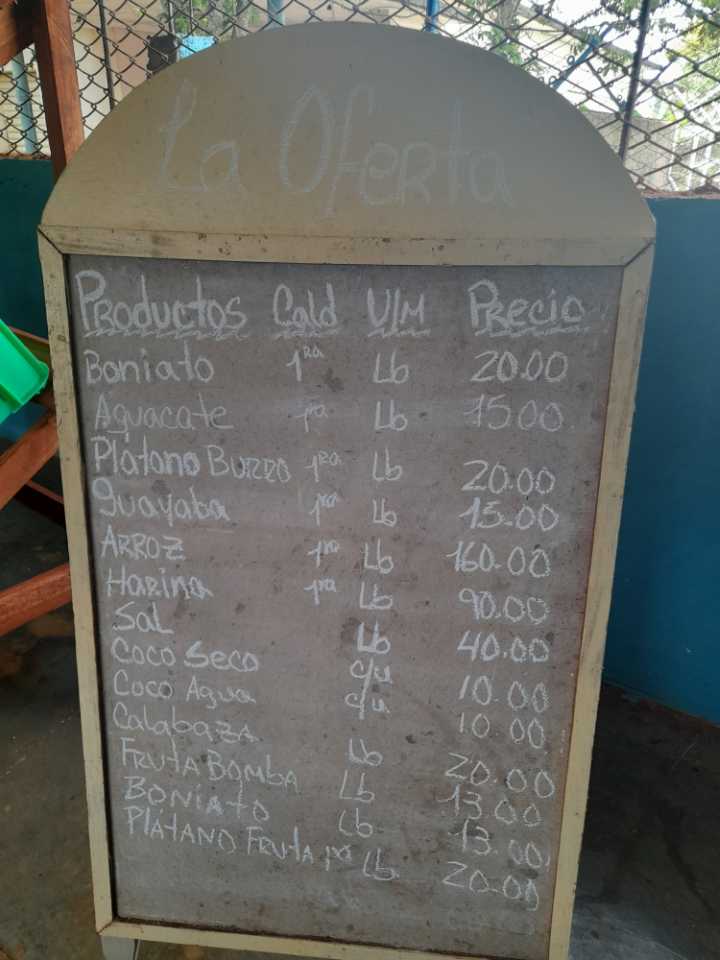 La Oferta
Productos Cald U/M Precio
Boniato 1ra Lb 20.00
Aguacate 1ra Lb 15.00
Plátano Burro 1ra Lb 20.00
Guayaba 1ra Lb 15.00
ARROZ 1ra Lb 160.00
Harina 1ra Lb 90.00
Sal Lb 40.00
Coco Seco c/u 10.00
Coco Agua c/u 10.00
Calabaza Lb 20.00
Fruta Bomba Lb 13.00
Boniato Lb 13.00
Plátano Fruta 1ra Lb 20.00